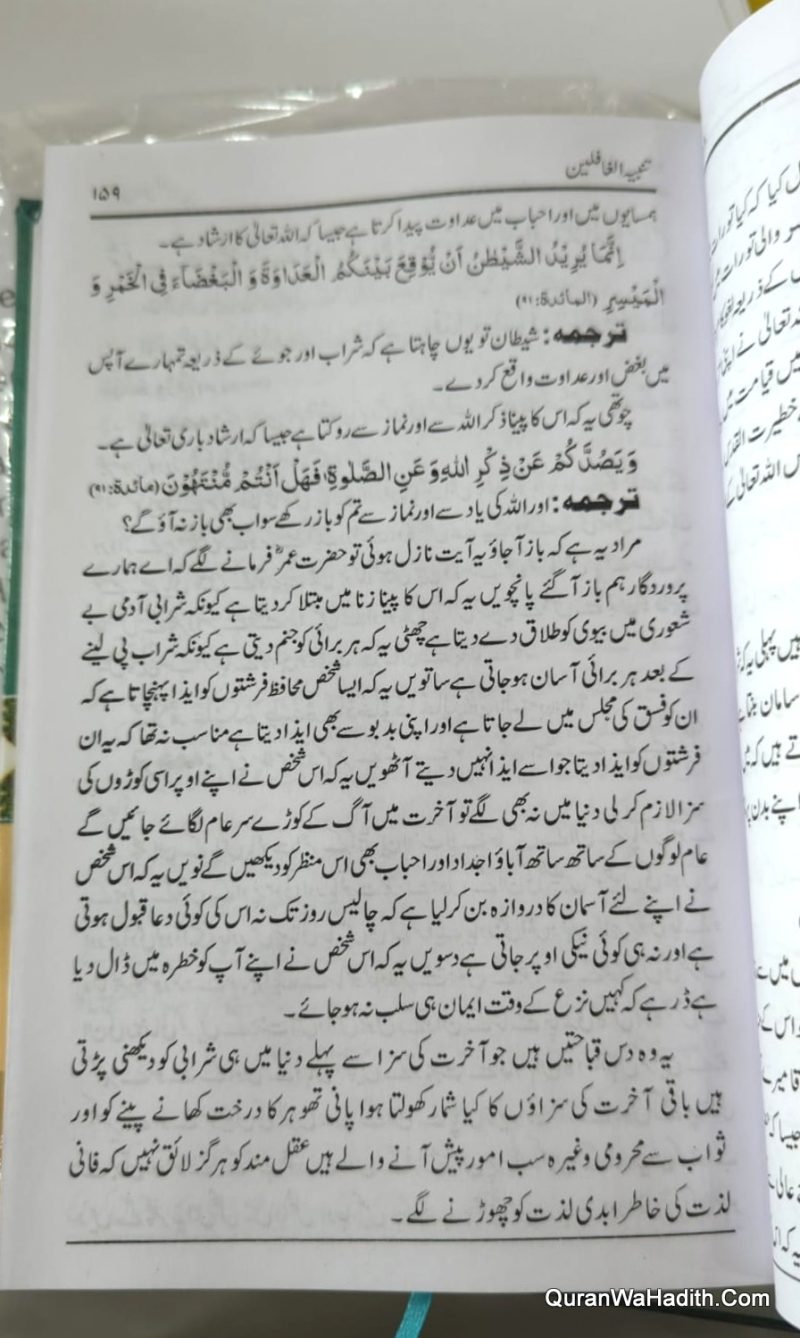 تنبیہ الغافلین
۱۵۹
ہمسایوں میں اور احباب میں عداوت پیدا کرتا ہے جیسا کہ اللہ تعالیٰ کا ارشاد ہے۔
اِنَّمَا یُرِیْدُ الشَّیْطٰنُ اَنْ یُّوْقِعَ بَیْنَکُمُ الْعَدَاوَةَ وَ الْبَغْضَآءَ فِی الْخَمْرِ وَ
الْمَیْسِرِ (المائدة:۹۱)
ترجمہ: شیطان تو یوں چاہتا ہے کہ شراب اور جوئے کے ذریعہ تمہارے آپس
میں بغض اور عداوت واقع کر دے۔
چوتھی یہ کہ اس کا پینا ذکر اللہ سے اور نماز سے روکتا ہے جیسا کہ ارشاد باری تعالیٰ ہے۔
وَ یَصُدَّکُمْ عَنْ ذِکْرِ اللهِ وَ عَنِ الصَّلٰوةِ، فَهَلْ اَنْتُمْ مُّنْتَهُوْنَ (مائدة:۹۱)
ترجمہ: اور اللہ کی یاد سے اور نماز سے تم کو باز رکھے سو اب بھی باز نہ آؤ گے؟
مراد یہ ہے کہ باز آ جاؤ یہ آیت نازل ہوئی تو حضرت عمرؓ فرمانے لگے کہ اے ہمارے
پروردگار ہم باز آ گئے پانچویں یہ کہ اس کا پینا زنا میں مبتلا کر دیتا ہے کیونکہ شرابی آدمی بے
شعوری میں بیوی کو طلاق دے دیتا ہے چھٹی یہ کہ ہر برائی کو جنم دیتی ہے کیونکہ شراب پی لینے
کے بعد ہر برائی آسان ہو جاتی ہے ساتویں یہ کہ ایسا شخص محافظ فرشتوں کو ایذا پہنچاتا ہے کہ
ان کو فسق کی مجلس میں لے جاتا ہے اور اپنی بدبو سے بھی ایذا دیتا ہے مناسب نہ تھا کہ یہ ان
فرشتوں کو ایذا دیتا جو اسے ایذا نہیں دیتے آٹھویں یہ کہ اس شخص نے اپنے اوپر اسی کوڑوں کی
سزا لازم کر لی دنیا میں نہ بھی لگے تو آخرت میں آگ کے کوڑے سرعام لگائے جائیں گے
عام لوگوں کے ساتھ ساتھ آباؤ اجداد اور احباب بھی اس منظر کو دیکھیں گے نویں یہ کہ اس شخص
نے اپنے لئے آسمان کا دروازہ بن کر لیا ہے کہ چالیس روز تک نہ اس کی کوئی دعا قبول ہوتی
ہے اور نہ ہی کوئی نیکی اوپر جاتی ہے دسویں یہ کہ اس شخص نے اپنے آپ کو خطرہ میں ڈال دیا
ہے ڈر ہے کہ کہیں نزع کے وقت ایمان ہی سلب نہ ہو جائے۔
یہ وہ دس قباحتیں ہیں جو آخرت کی سزا سے پہلے دنیا میں ہی شرابی کو دیکھنی پڑتی
ہیں باقی آخرت کی سزاؤں کا کیا شمار کھولتا ہوا پانی تھوہر کا درخت کھانے پینے کو اور
ثواب سے محرومی وغیرہ سب امور پیش آنے والے ہیں عقل مند کو ہرگز لائق نہیں کہ فانی
لذت کی خاطر ابدی لذت کو چھوڑنے لگے۔
QuranWaHadith.Com